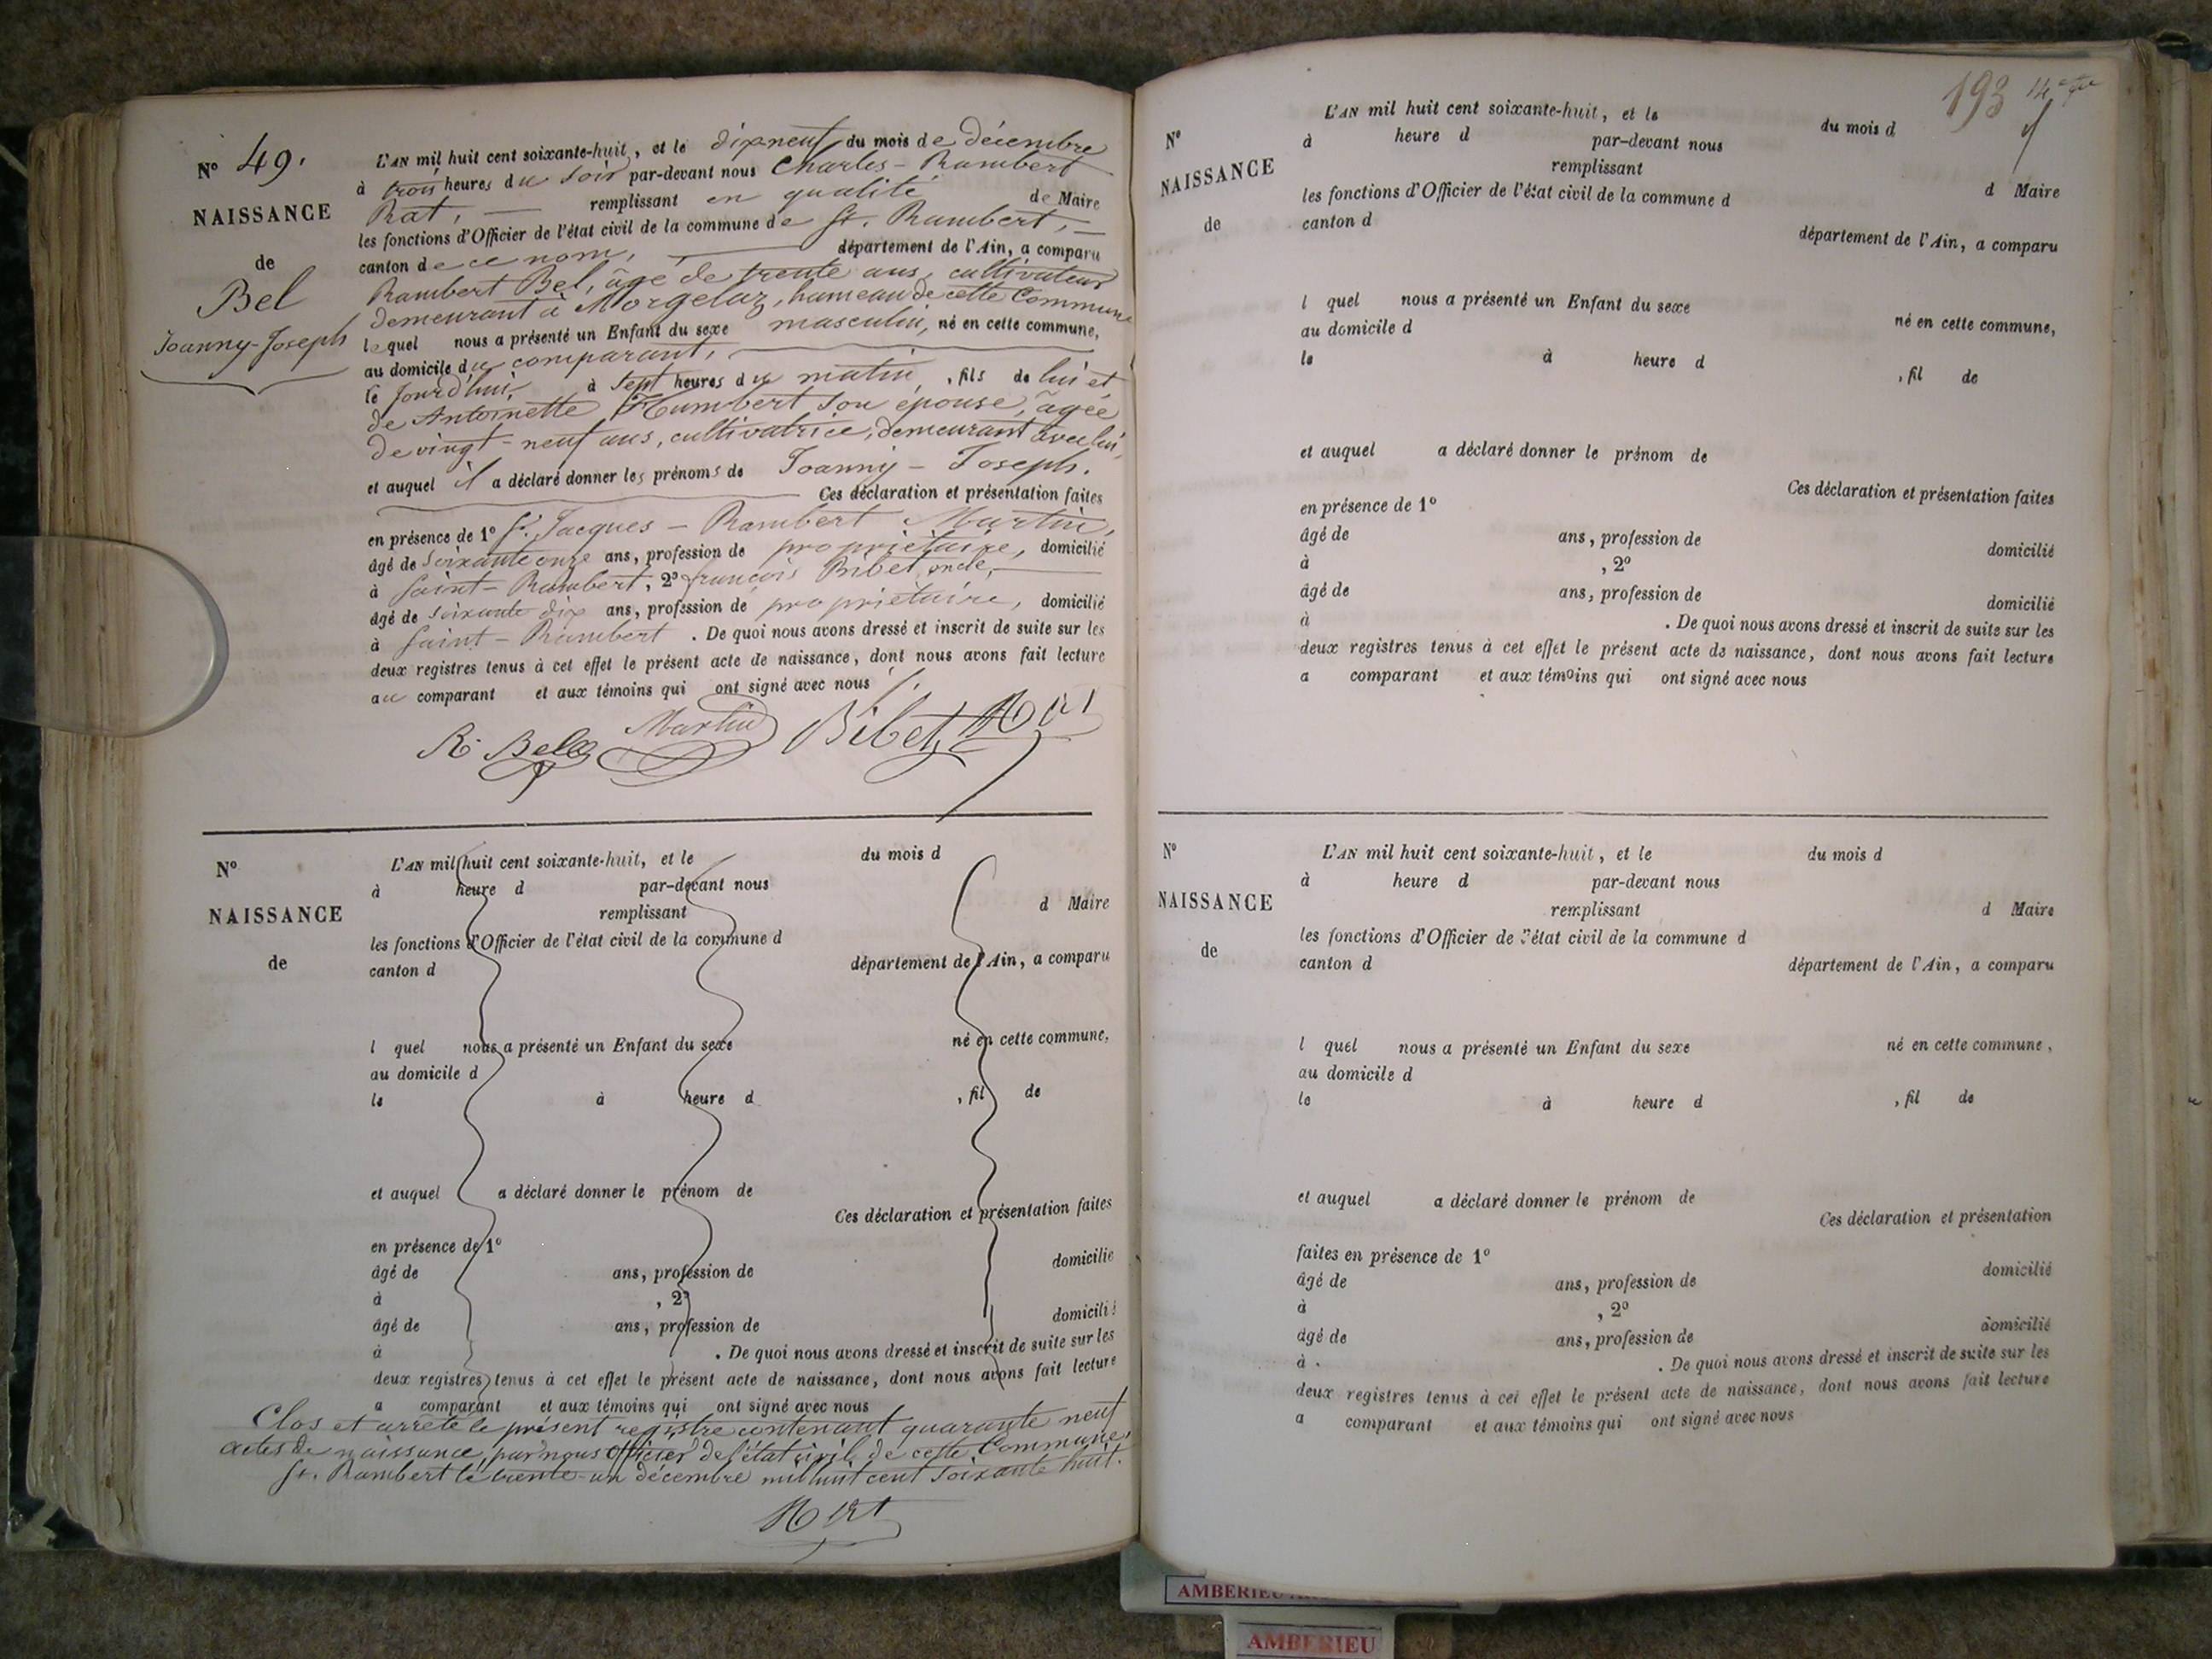 N° 49.
NAISSANCE
de
Bel
Joanny-Joseph
L'AN mil huit cent soixante-huit, et le dixneuf du mois de décembre
à trois heures du soir par-devant nous Charles-Rambert
Rat, remplissant en qualité de Maire
les fonctions d'Officier de l'état civil de la commune de St. Rambert,
canton de ce nom, département de l'Ain, a comparu
Rambert Bel, âgé de trente ans, cultivateur
demeurant à Morgelaz, hameau de cette Commune
lequel nous a présenté un Enfant du sexe masculin, né en cette commune,
au domicile du comparant,
le jourd'hui, à sept heures du matin, fils de lui et
de Antoinette Humbert son épouse, âgée
de vingt-neuf ans, cultivatrice, demeurant avec lui,
et auquel il a déclaré donner les prénoms de Joanny-Joseph.
Ces déclaration et présentation faites
en présence de 1° Sr. Jacques-Rambert Martin,
âgé de soixante onze ans, profession de propriétaire, domicilié
à Saint-Rambert, 2° françois Bibet, oncle,
âgé de soixante dix ans, profession de propriétaire, domicilié
à Saint-Rambert. De quoi nous avons dressé et inscrit de suite sur les
deux registres tenus à cet effet le présent acte de naissance, dont nous avons fait lecture
au comparant et aux témoins qui ont signé avec nous
R. Bel Martin Bibet Rat
N°
NAISSANCE
de
L'AN mil huit cent soixante-huit, et le du mois d
à heure d par-devant nous
remplissant d Maire
les fonctions d'Officier de l'état civil de la commune d
canton d département de l'Ain, a comparu
l quel nous a présenté un Enfant du sexe né en cette commune,
au domicile d
le à heure d , fil de
et auquel a déclaré donner le prénom de
Ces déclaration et présentation faites
en présence de 1°
âgé de ans, profession de domicilié
à , 2°
âgé de ans, profession de domicilié
à . De quoi nous avons dressé et inscrit de suite sur les
deux registres tenus à cet effet le présent acte de naissance, dont nous avons fait lecture
a comparant et aux témoins qui ont signé avec nous
Clos et arrêté le présent registre contenant quarante neuf
actes de naissance, par nous Officier de l'état civil de cette Commune.
St. Rambert le trente-un décembre mil huit cent soixante huit.
Rat
193
N°
NAISSANCE
de
L'AN mil huit cent soixante-huit, et le du mois d
à heure d par-devant nous
remplissant d Maire
les fonctions d'Officier de l'état civil de la commune d
canton d département de l'Ain, a comparu
l quel nous a présenté un Enfant du sexe né en cette commune,
au domicile d
le à heure d , fil de
et auquel a déclaré donner le prénom de
Ces déclaration et présentation faites
en présence de 1°
âgé de ans, profession de domicilié
à , 2°
âgé de ans, profession de domicilié
à . De quoi nous avons dressé et inscrit de suite sur les
deux registres tenus à cet effet le présent acte de naissance, dont nous avons fait lecture
a comparant et aux témoins qui ont signé avec nous
N°
NAISSANCE
de
L'AN mil huit cent soixante-huit, et le du mois d
à heure d par-devant nous
remplissant d Maire
les fonctions d'Officier de l'état civil de la commune d
canton d département de l'Ain, a comparu
l quel nous a présenté un Enfant du sexe né en cette commune,
au domicile d
le à heure d , fil de
et auquel a déclaré donner le prénom de
Ces déclaration et présentation
faites en présence de 1°
âgé de ans, profession de domicilié
à , 2°
âgé de ans, profession de domicilié
à . De quoi nous avons dressé et inscrit de suite sur les
deux registres tenus à cet effet le présent acte de naissance, dont nous avons fait lecture
a comparant et aux témoins qui ont signé avec nous
AMBERIEU
AMBERIEU